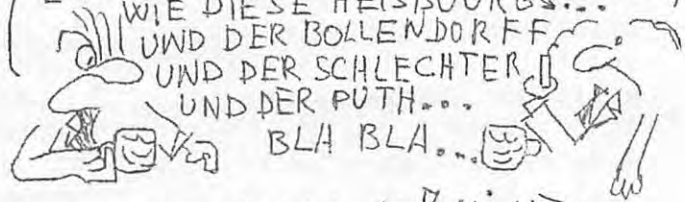 WIE DIESE HEISBOURGS...
UND DER BOLLENDORFF
UND DER SCHLECHTER
UND DER PÜTH...
BLA BLA...